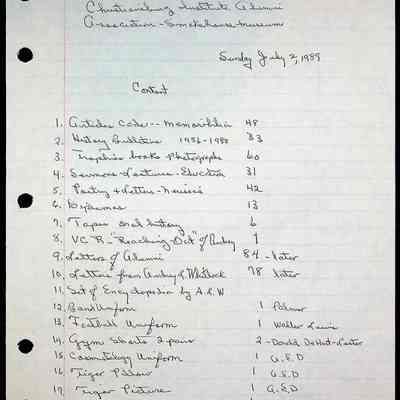 Christiansburg Institute Alumni
Association - Smokehouse-Museum
Sunday July 2, 1989
Content
1. Articles Code -- Memorabilia 48
2. History Bulletins 1956-1988 33
3. Trophies books Photographs 60
4. Sermons-Lectures-Education 31
5. Poetry & Letters - 42
6. Diplomas 13
7. Tapes oral history 6
8. VCR-"Reaching Out" of
9. Letters of Alumni 84 - later
10. Letters from & 78 later
11. Set of Encyclopedia by A.G.W
12. Band Uniform 1 Palmer
13. Football Uniform 1 Walker
14. Gym Shorts 2 pairs 2-David DeHart-Carter
15. Cosmetology Uniform 1 G.E.D
16. Tiger Pillow 1 G.E.D
17. Tiger Picture 1 G.E.D